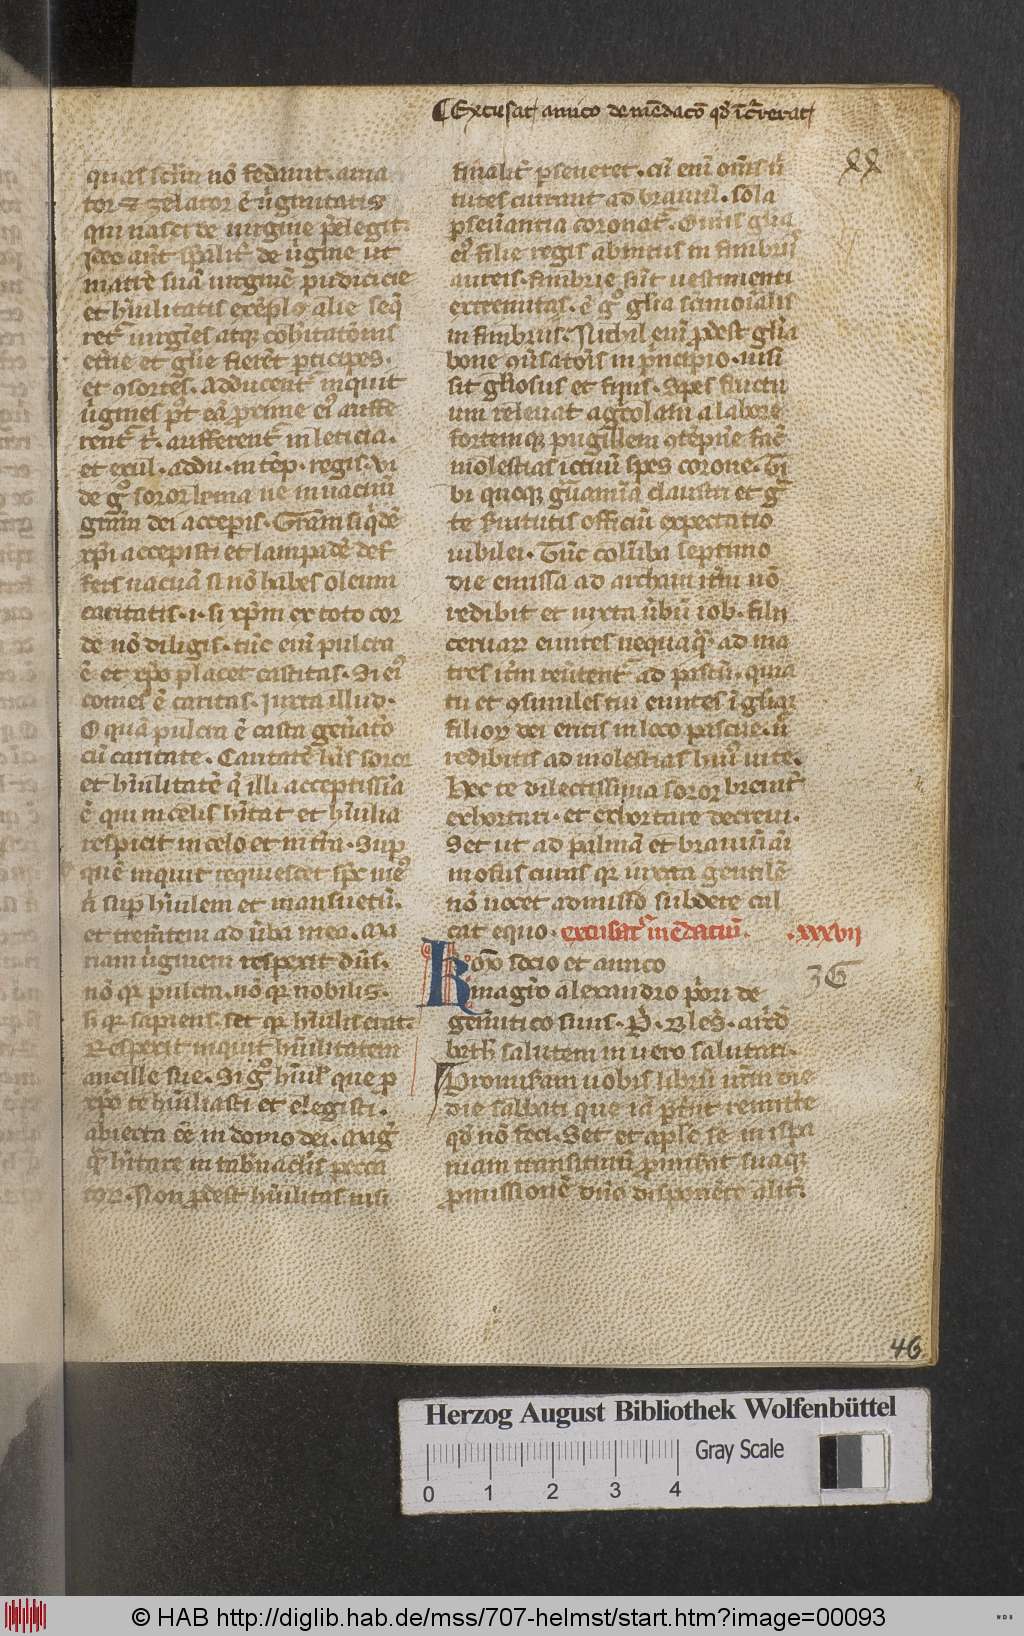 Excusat amico de mēdacō qđ īc̄rrerat
quas sctm̄ nō fedauit. ama
tor et zelator ē v̓ginitatis
qui nasci de virgine p̄elegit.
Ideo aūt sp̄alit̄ de v̓gine ut
matrē suā virginē pudicicie
et hūilitatis exēplo alie seq̄
rēt̄ virgīes atq̄ cohītatōnis
et̄ne et gl̄ie fierēt p̄ticipes.
et ɔsortes. Adducent̄ inquit
v̓gines pt̄ eā proxime ei᷒ auffe
rent̄ t̄. aufferent̄ in leticia.
et exul. addu. in tēp. regis. Vi
de g̊ soror bn̄a ne in vacuū
grām dei acceperis. Grām siq̄dē
xp̄i accepisti et lampadē def
fers vacuā si nō habes oleum
caritatis. i. si xp̄m ex toto cor
de nō diligis. tūc eni pulcra
ē et xp̄o placet castitas. Si ei᷒
comes ē caritas. Juxta illud.
O quā pulcra ē casta gen̄atō
cū caritate. Caritatē hn̄s soror
et hūilitatē q̄ illi acceptissīa
ē qui in celis hītat et hūilia
respicit in celo et in t̄ra. Sup
quē inquit requiescet sp̄c me᷒
n̄ sup hūilem et mansuetū.
et trem̄tem ad v̄ba mea. Ma
riam v̓ginem respexit dn̄s.
nō qr pulcra. nō qr nobilis.
n̄ qr sapiens. set qr hūilis erat.
Respexit inquit hūilitatem
ancille sue. Si g̊ hūil᷒ que p
xp̄o te hūiliasti et elegisti.
abiecta eē in domo dei. mag᷒
q̄ hītare in tab̄nac̄lis pecca
tor. Non p̄dest hūilitas nisi
finalit̄ pseueret. cū enī om̄s v̓
tutes currant ad brauiū. sola
pseūantia coronat̄. Omīs gl̄ia
ei᷒ filie regis abintus in fimbrijs
aureis. fimbrie sūt vestimenti
extremitas. ē g̊ gl̄ia sc̄imoialis
in fimbrijs. Nichil enī p̄dest gl̄ia
bone ɔu̓satōis in p̄ncipio. nisi
sit gl̄iosus et finis. Spes fructu
um releuat agcolam a labore
fortemq̄ pugillem ɔtēpn̄e fac̄
molestias ictuū spes corone. Ti
bi quoq̄ g̓uamīa claustri et g᷒
te s̓uitutis officiū expectatio
iubilei. Tūc colūba septimo
die emissa ad archam itm̄ nō
redibit et iuxta v̄bū iob. filij
ceruarum euntes nequaq̄ ad ma
tres itm̄ reūtent̄ ad pastū. quia
tu et ɔsimiles tui euntes ī gl̄iam
filiorum dei eritis in loco pascue. n̄
redibitis ad molestias hui᷒ vite.
Hec te dilectissima soror breuit̄
exhortari. et exhortare decreui.
Set ut ad palmā et brauiū aī
mosius curras qr iuxta gentilē
nō nocet admisso subdere cal
car equo. excusat̄ mēdaciū. .xxxvij
36
Karo socio et amico
magr̄o alexandro p̄ori de
gemitico suus. P. Bles. archd
bath salutem in vero salutari.
Promiseram vobis librū m̄m die
die sabbati que iā pt̄ijt remitte
qđ nō feci. Set et apls se in ispa
niam transiturū p̄misit suaq̄
p̄missionē dn̄o disponēte alit̄.
46
Herzog August Bibliothek Wolfenbüttel
Gray Scale
0 1 2 3 4
© HAB http://diglib.hab.de/mss/707-helmst/start.htm?image=00093